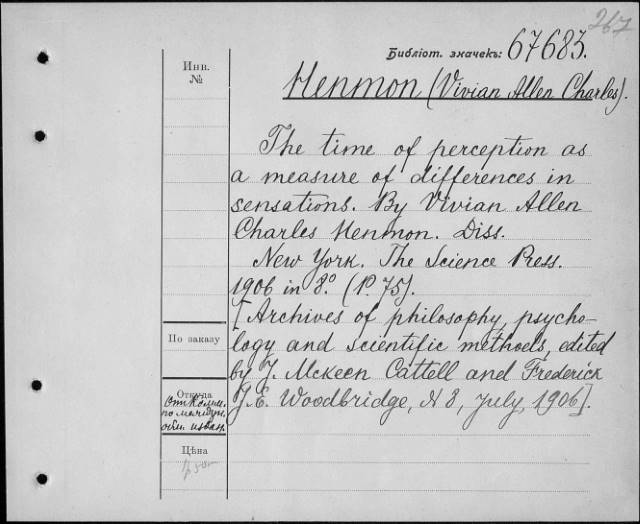 267
Библіот. значекъ: 67683.
Инв.
№
Henmon (Vivian Allen Charles).
The time of perception as
a measure of differences in
sensations. By Vivian Allen
Charles Henmon. Diss.
New York. The Science Press.
1906 in 8.° (P. 75).
[Archives of philosophy, psycho-
logy and scientific methods, edited
by J. Mckeen Cattell and Frederick
J. E. Woodbridge, N 8, July, 1906].
По заказу
Откуда
Цѣна